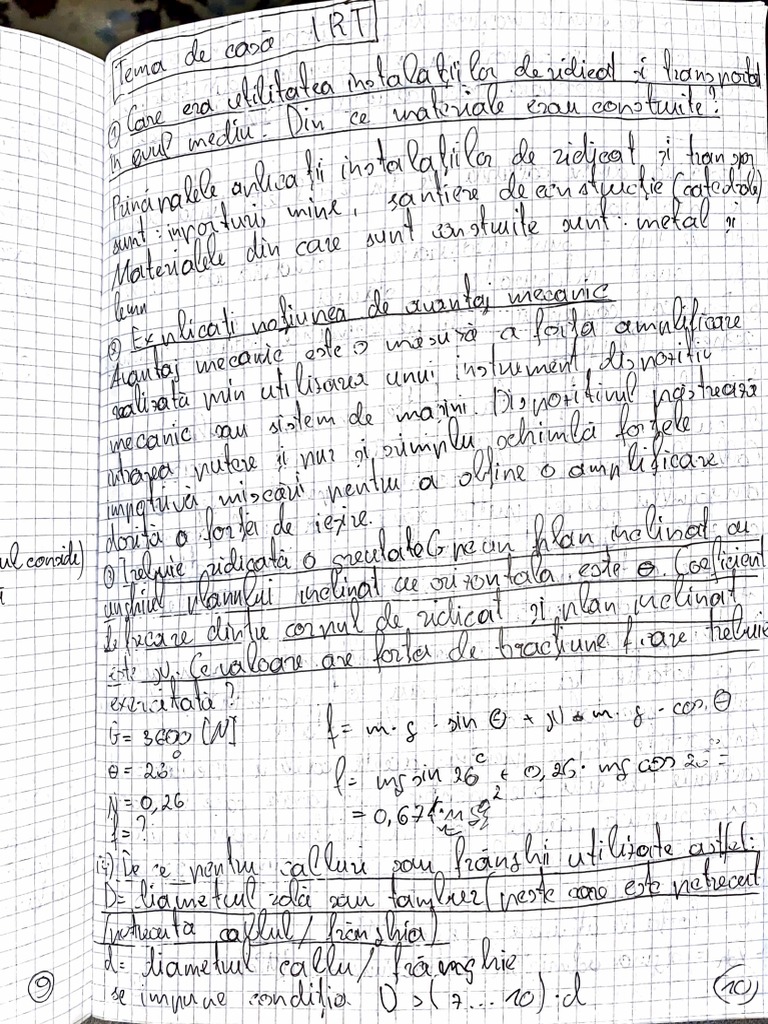 Tema de casă IRT
① Care era utilitatea instalațiilor de ridicat și transportat
în evul mediu. Din ce materiale erau construite?
Principalele aplicații instalațiilor de ridicat și transpor
sunt: porturi, mine, șantiere de construcție (catedrale)
Materialele din care sunt construite sunt: metal și
lemn
② Explicați noțiunea de avantaj mecanic
Avantaj mecanic este o măsură a forța amplificare
realizată prin utilisarea unui instrument, dispozitiv
mecanic sau sistem de mașini. Dispozitivul păstrează
intrarea putere și pur și simplu schimbă forțele
împotriva mișcări pentru a obține o amplificare
dorită a forței de ieșire.
③ Trebuie ridicată o greutate G pe un plan inclinat cu
unghiul planului inclinat cu orizontala este θ. Coeficient
de frecare dintre corpul de ridicat și plan inclinat
este μ. Ce valoare are forța de tracțiune f care trebuie
exercitată?
G = 3600 [N]
f = m · g · sin θ + μ · m · g · cos θ
θ =
f = mg sin 26° + 0,26 · mg cos
μ = 0,26
= 0,67
f = ?
De ce pentru cabluri sau frânghii utilizate astfel:
D = diametrul rolă sau tambur (peste care este petrecut
/petrecuta cablul / frânghia)
d = diametrul cablu / frânghie
se impune condiția D > (7...10) · d
ul conside)
9
10